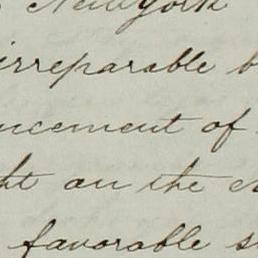 New York
irreparable b
ncement of
ht on the e
favorable s